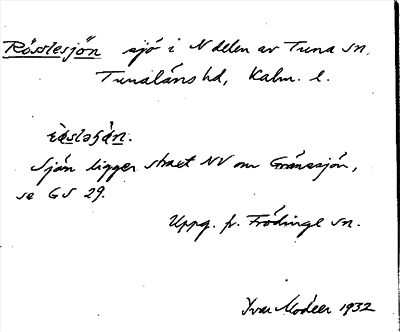 Röstlesjön sjö i N delen av Tuna sn,
Tunaläns hd, Kalm. l.
Sjön ligger straxt NV om Gränssjön,
se GS 29.
Uppg. fr. Frödinge sn.
Ivar Modéer 1932